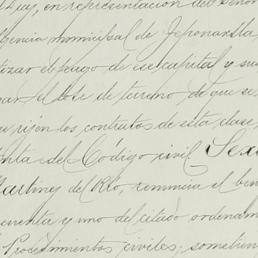 en representación del Señor
municipal de Jeponaxtla
el pago de ese capital y su
el lote de terreno de que se
rijen los contratos de esta clase,
del Código civil. Sex
Martinez del Rio, renuncia el ben
cuenta y uno del citado ordenam
Procedimientos civiles: sometien